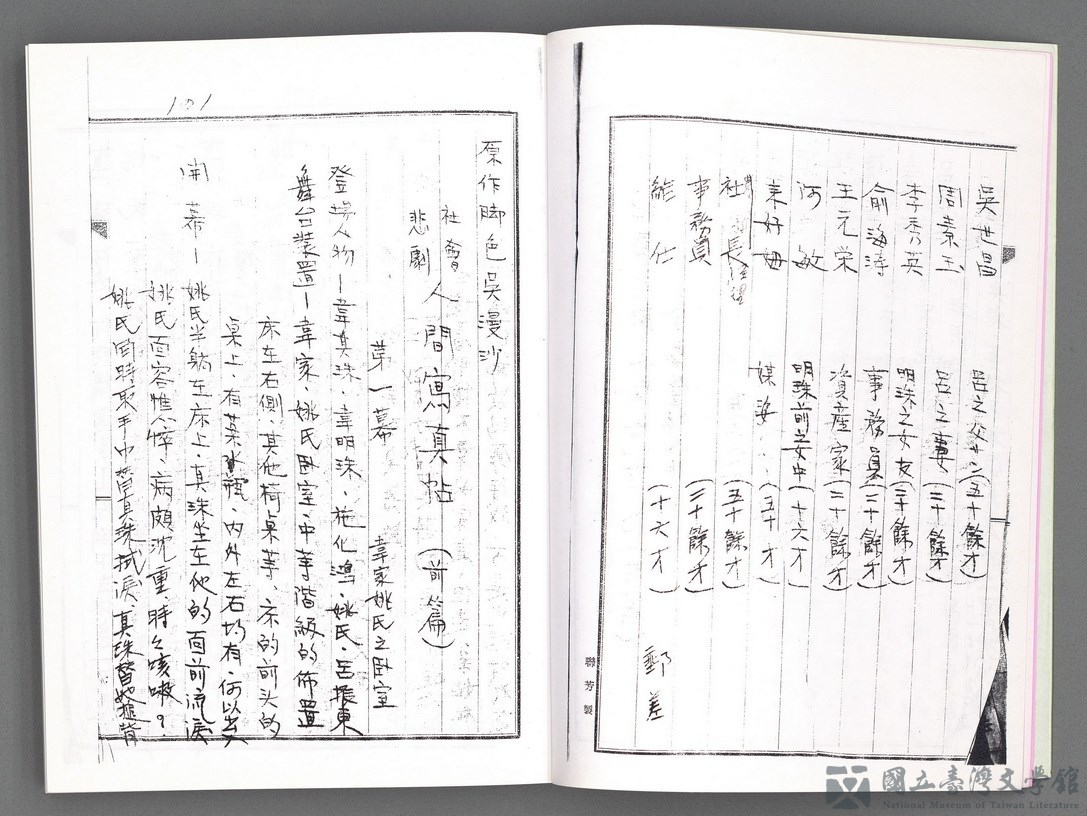 吳世昌　呂之父（五十餘才）
周素玉　呂之妻（三十餘才）
李秀英　明珠之女友（三十餘才）
俞海濤　事務員（三十餘才）
王元栄　資産家（三十餘才）
何敏　明珠前之女中（十六才）
来好母　媒婆（五十才）
社長（五十餘才）
事務員（三十餘才）
給仕（十六才）　郵差
聯芳製
101
原作脚色吳漫沙
社會悲劇　人間寫真帖（前篇）
第一幕　韋家姚氏之卧室
登場人物－韋真珠、韋明珠、施化鴻、姚氏、呂振東
舞台装置－韋家、姚氏卧室、中等階級的佈置
床在右側、其他椅桌等、床的前头的
桌上、有茶瓶、内外左右均有
開幕－姚氏半躺在床上、真珠坐在他的面前流淚
姚氏面容憔悴、病頗沈重、時々咳嗽。
姚氏同時取手巾替真珠拭淚、真珠替她搥背
國立臺灣文學館
National Museum of Taiwan Literature